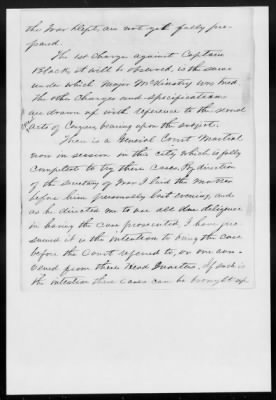 the War Dept. are not yet fully pre-
pared.
The 1st Charge against Captain
Black, it will be observed, is the same
under which Major McKinstry was tried.
The other Charges and Specifications
are drawn up with reference to the several
acts of Congress bearing upon the subject.
There is a General Court Martial
now in session in this city, which is fully
competent to try these cases. By direction
of the Secretary of War I laid the matter
before him personally last evening, and
as he directed me to use all due diligence
in having the case prosecuted, I have pre-
sumed it is the intention to bring the case
before the Court referred to, or one con-
vened from these Head Quarters. If such is
the intention these cases can be brought up